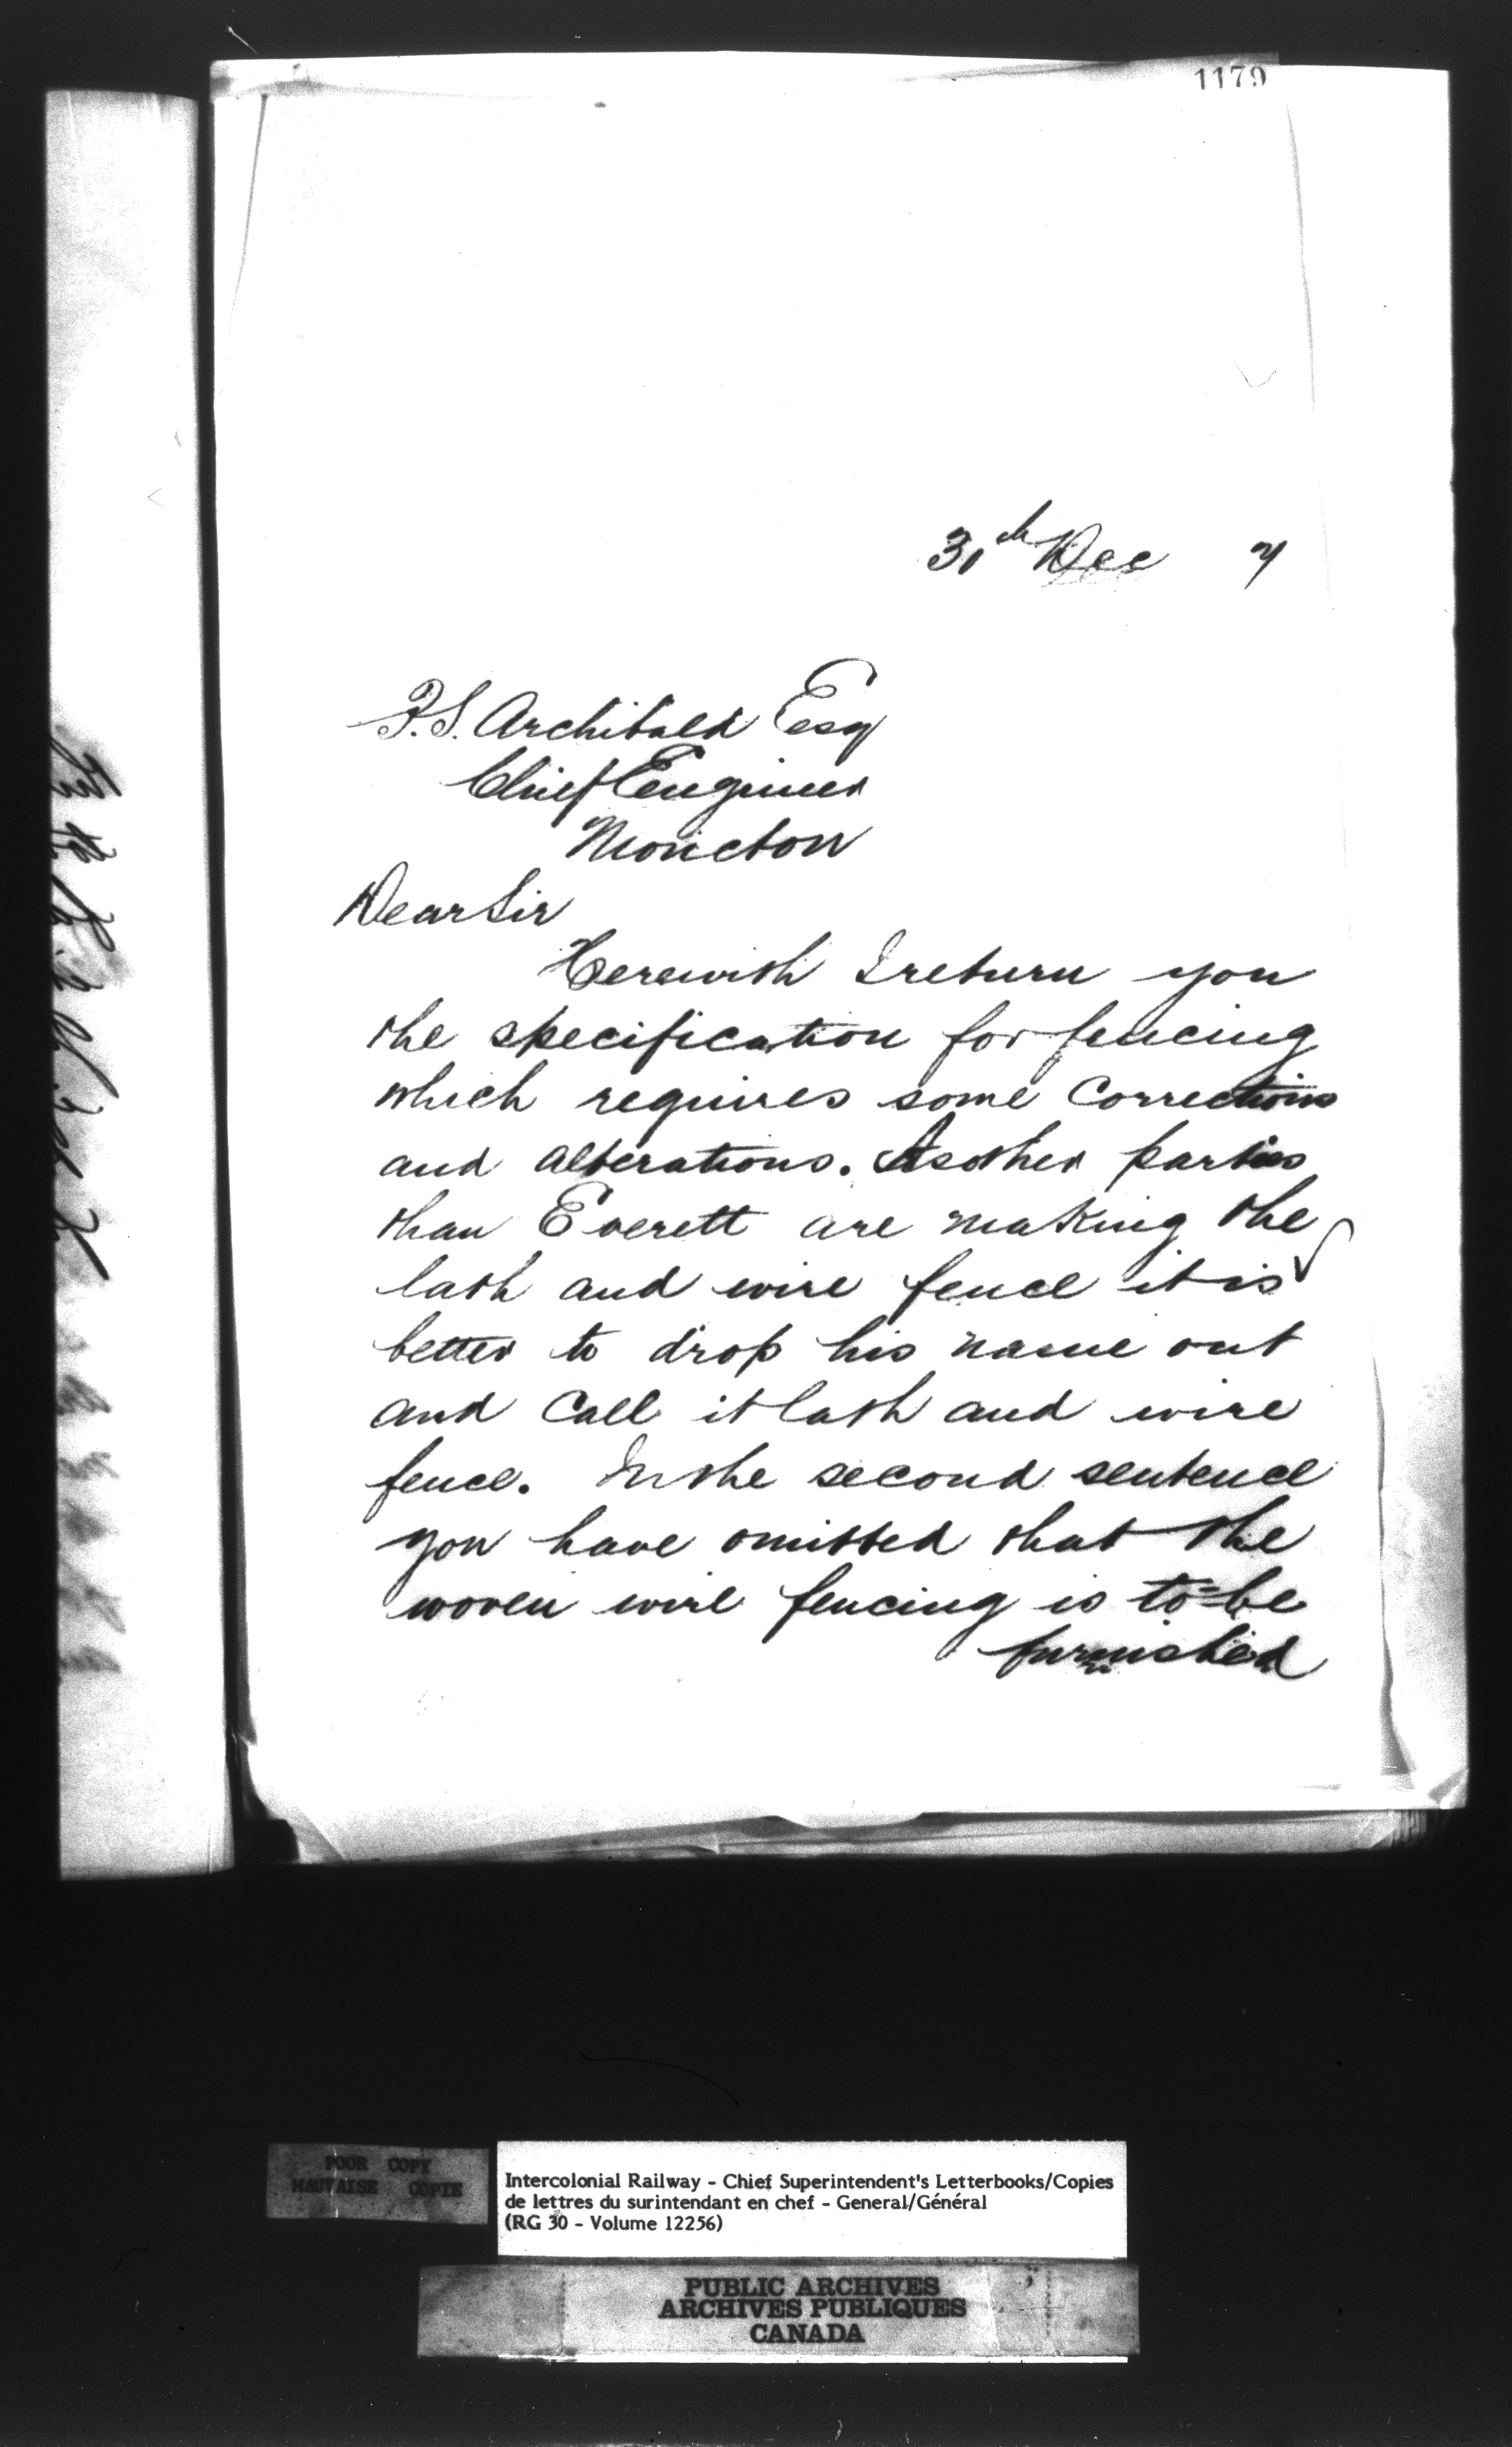 1179
31th Dec 7
P.S. Archibald Esq
Chief Engineer
Moncton
Dear Sir
Herewith I return you
the specification for fencing
which requires some corrections
and alterations. As other parties
than Everett are making the
lath and wire fence it is
better to drop his name out
and call it lath and wire
fence. In the second sentence
you have omitted that the
woven wire fencing is to be
furnished
POOR COPY
MAUVAISE COPIE
Intercolonial Railway - Chief Superintendent's Letterbooks/Copies
de lettres du surintendant en chef - General/Général
(RG 30 - Volume 12256)
PUBLIC ARCHIVES
ARCHIVES PUBLIQUES
CANADA